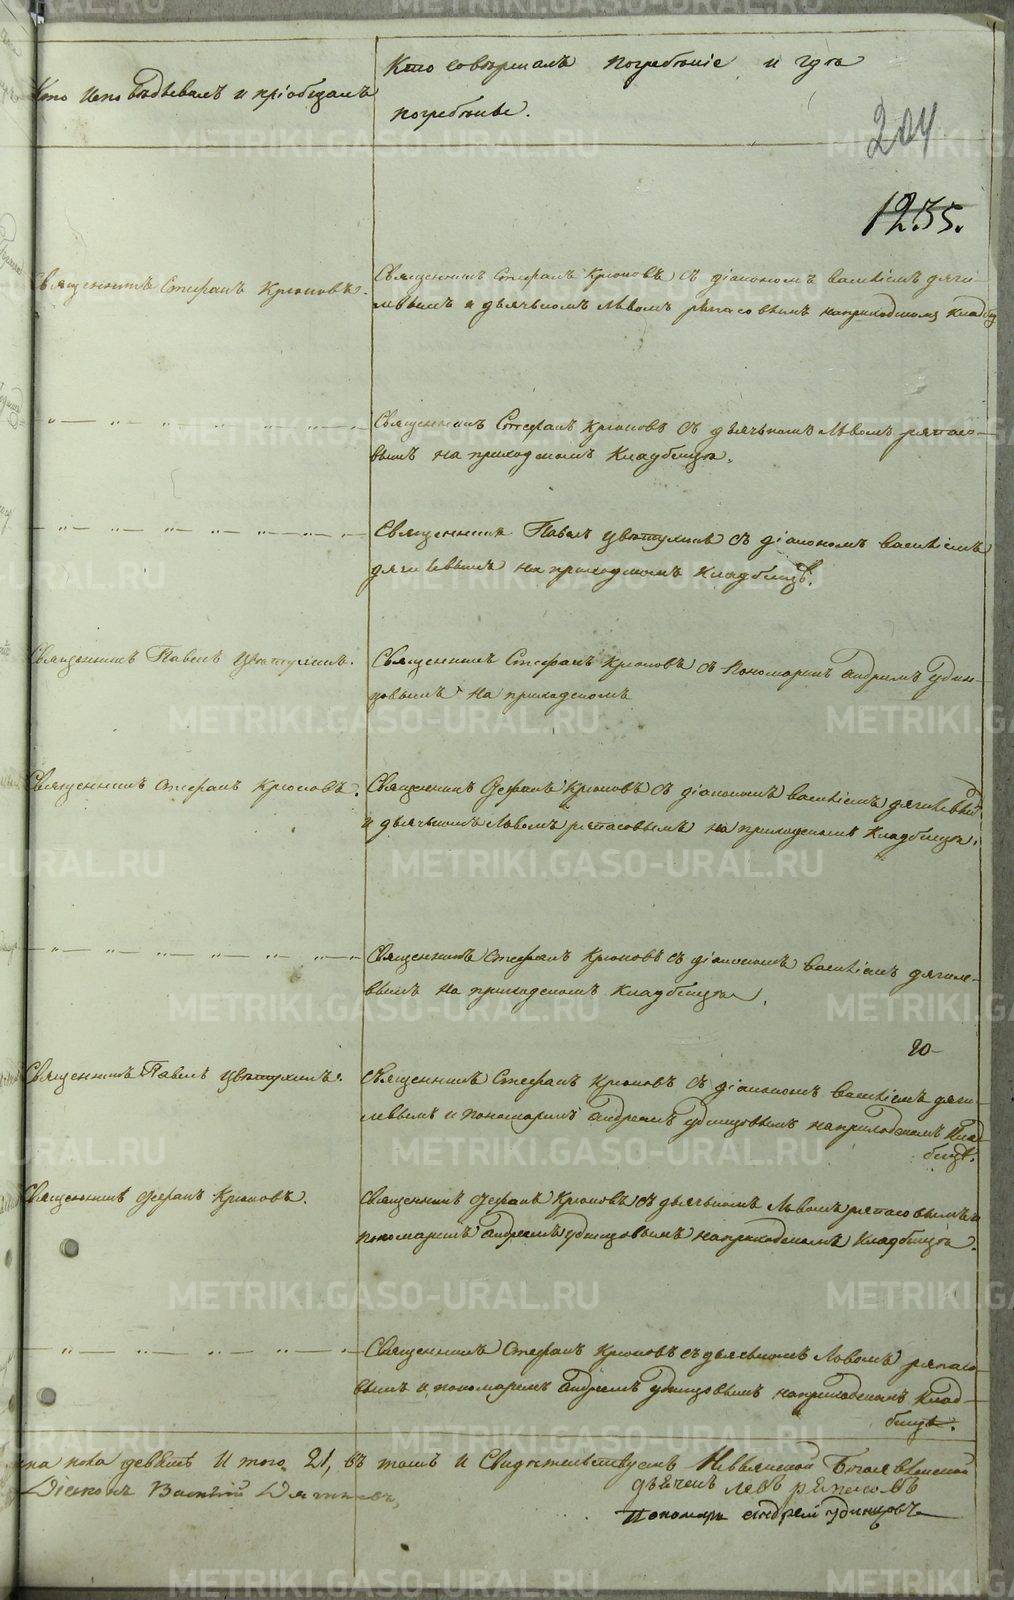 Кто исповѣдывалъ и пріобщалъ
Кто совершалъ погребеніе и гдѣ
погребены.
204
1235.
Священникъ Стефанъ Крюковъ.
Священникъ Стефанъ Крюковъ съ діакономъ Василіемъ Дяги-
левымъ и дьячькомъ Львомъ Ряпасовымъ на приходскомъ кладби
— „ — „ — „ — „ — „ —
Священникъ Стефанъ Крюковъ съ дьячькомъ Львомъ Ряпасо-
вымъ на приходскомъ кладбищѣ.
— „ — „ — „ — „ — „ —
Священникъ Павелъ Цвѣтухинъ съ діакономъ Василіемъ
Дягилевымъ на приходскомъ кладбищѣ.
Священникъ Павелъ Цвѣтухинъ.
Священникъ Стефанъ Крюковъ съ Пономаремъ Андреемъ Удин-
цовымъ на приходскомъ
Священникъ Стефанъ Крюковъ.
Священникъ Стефанъ Крюковъ съ діакономъ Василіемъ Дягилевым
и дьячькомъ Львомъ Ряпасовымъ на приходскомъ кладбищѣ.
— „ — „ — „ — „ — „ —
Священникъ Стефанъ Крюковъ съ діакономъ Василіемъ Дягиле-
вымъ на приходскомъ кладбищѣ.
20-
Священникъ Павелъ Цвѣтухинъ.
Священникъ Стефанъ Крюковъ съ діакономъ Василіемъ Дяги-
левымъ и пономаремъ Андреемъ Удинцовымъ на приходскомъ клад-
бищѣ.
Священникъ Стефанъ Крюковъ.
Священникъ Стефанъ Крюковъ съ дьячькомъ Львомъ Ряпасовымъ и
пономаремъ Андреемъ Удинцовымъ на приходскомъ кладбищѣ.
— „ — „ — „ — „ —
Священникъ Стефанъ Крюковъ съ дьячькомъ Львомъ Ряпасо-
вымъ и пономаремъ Андреемъ Удинцовымъ на приходскомъ клад-
бищѣ.
пола девять Итого 21, въ томъ и Свидѣтельствуемъ Невьянской Богоявленской
Діаконъ Василій Дягилевъ,
дьячекъ Левъ Ряпасовъ
Пономарь Андрей Удинцовъ
METRIKI.GASO-URAL.RU